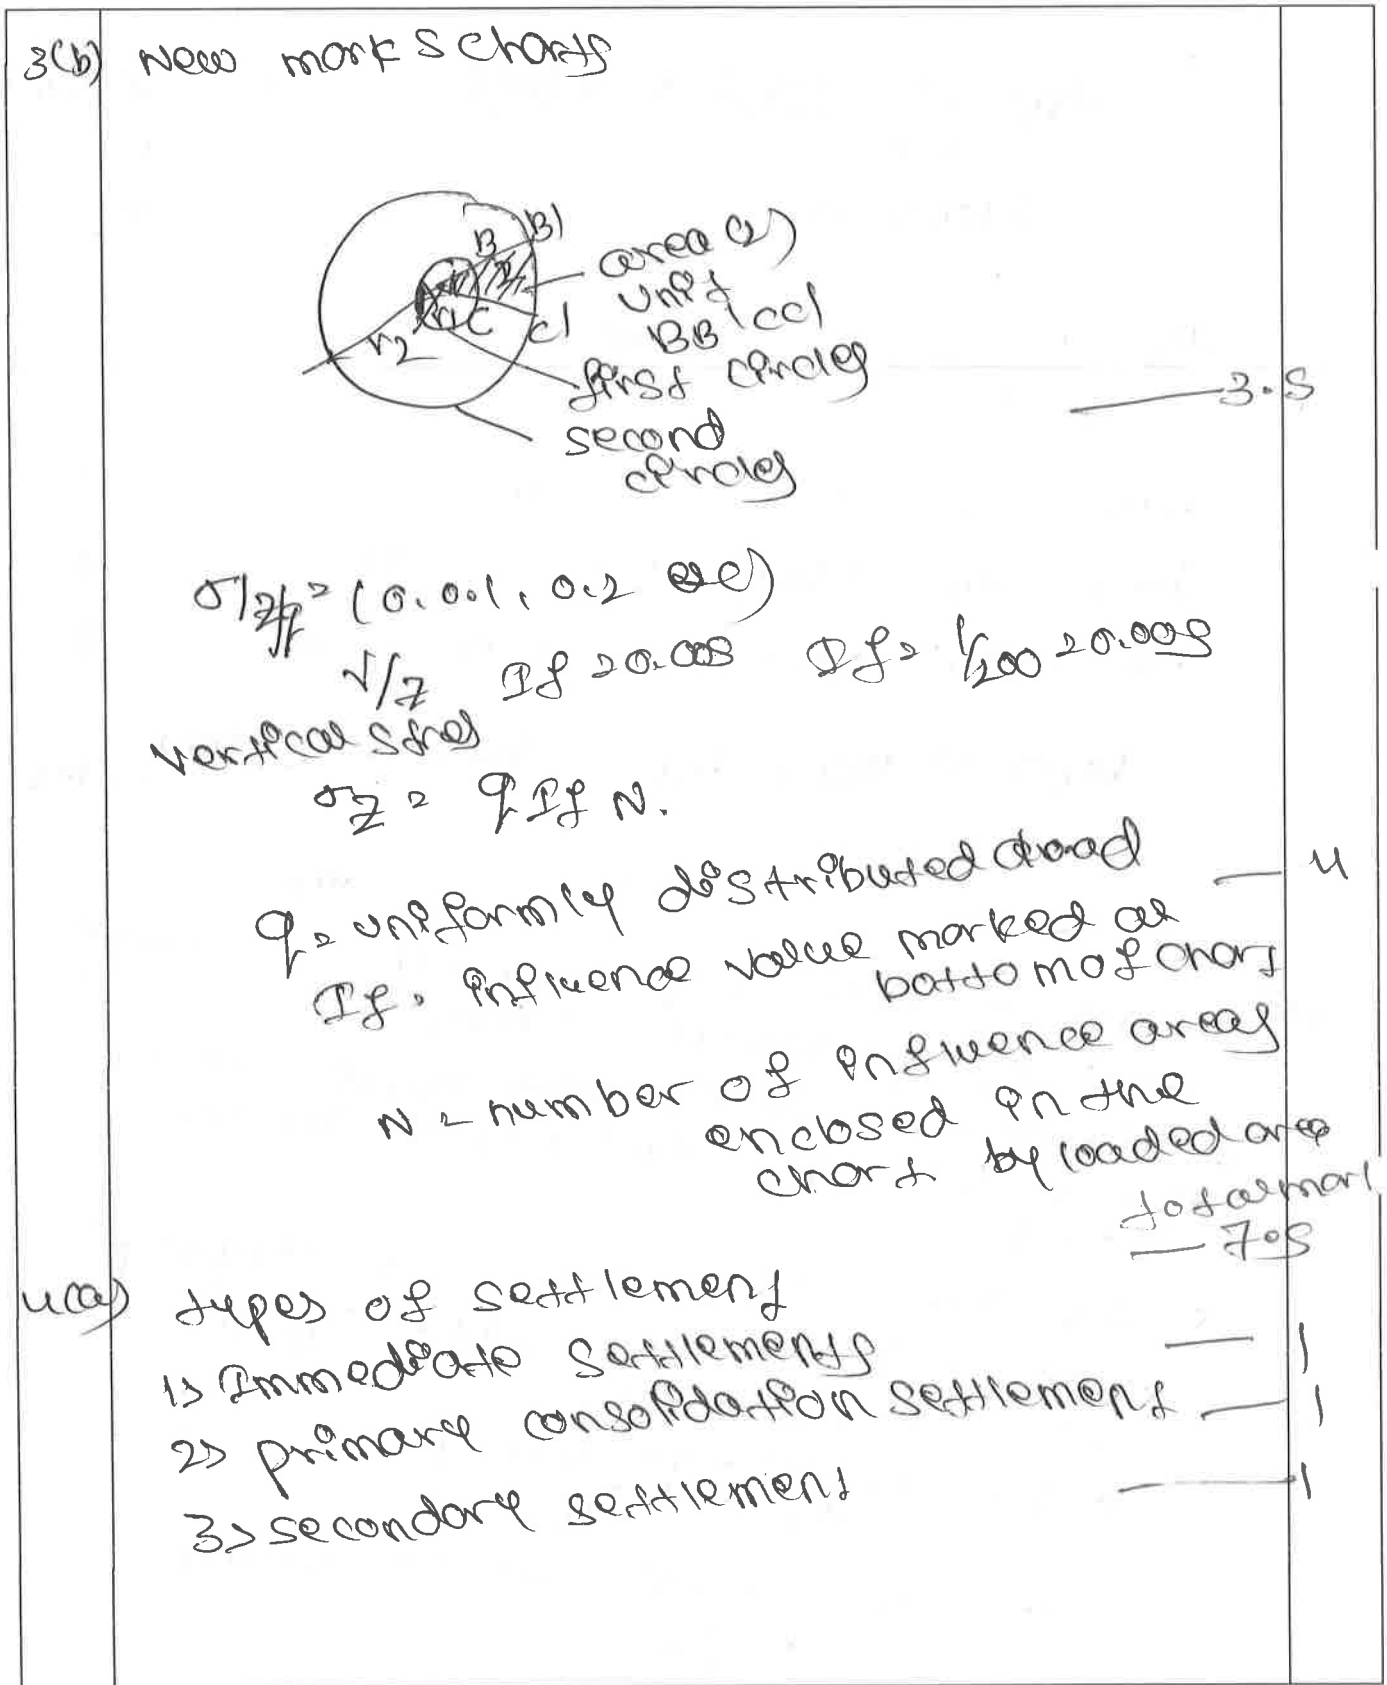 3(b) New marks charts
B B1
area a)
unit
BB1 cc1
r1 C C1
r2
first circles
second
circles
3.5
σ/z/q = (0.001, 0.2 etc)
r/z If = 0.005 If = 1/200 = 0.005
vertical stres
σz = q If N.
q = uniformly distributed load — 4
If = influence value marked at
bottom of chart
N = number of influence areas
enclosed in the
chart by loaded area
total mark
— 7.5
4(a) types of settlement
1> Immediate settlements — 1
2> primary consolidation settlement — 1
3> secondary settlement — 1